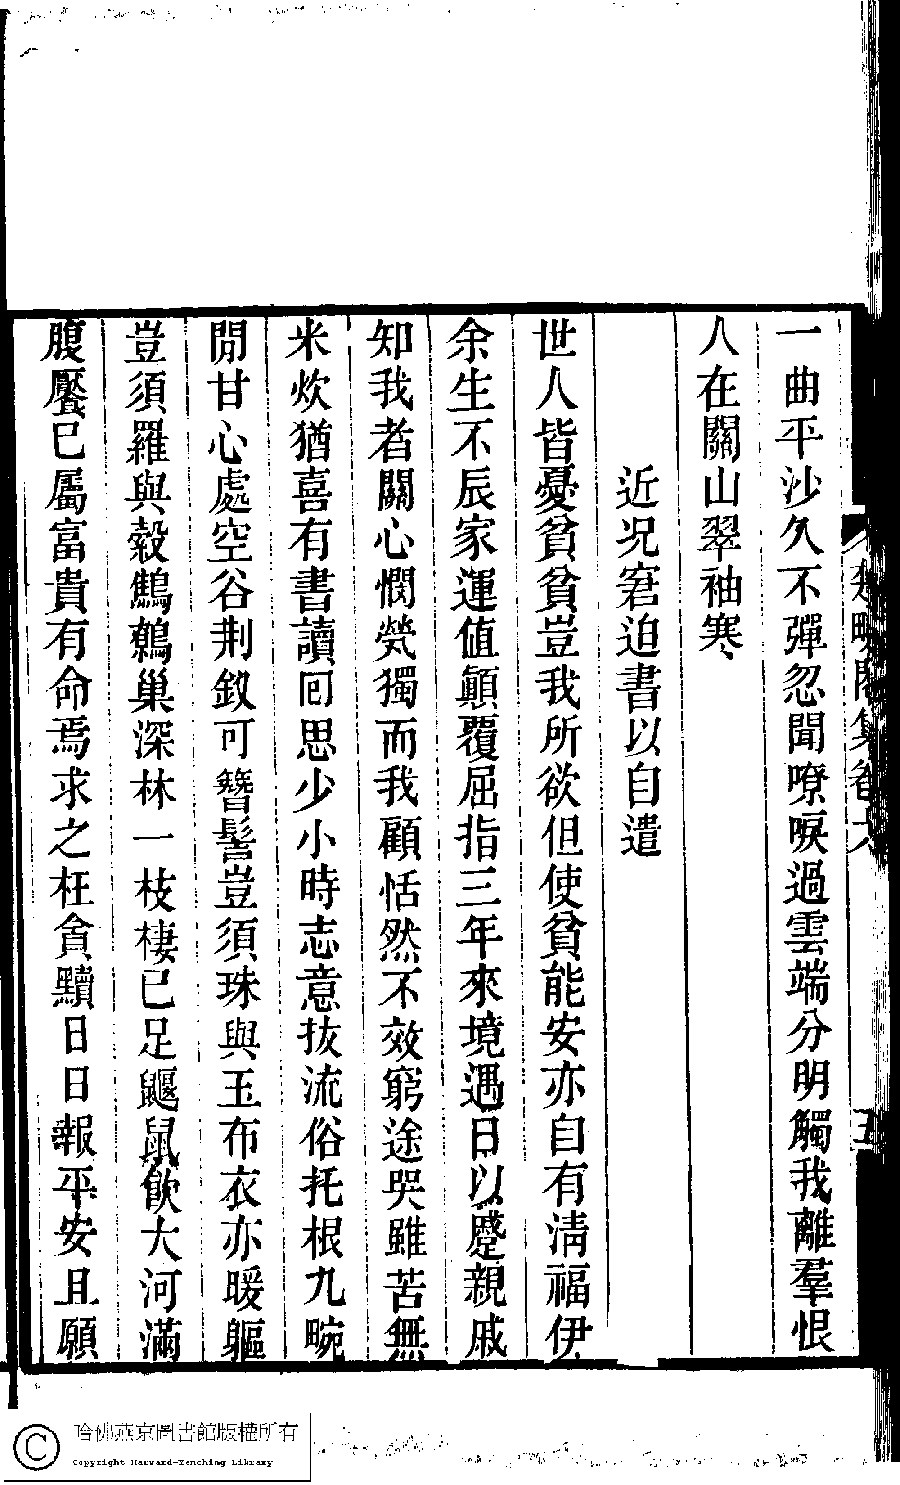 一曲平沙久不彈忽聞嘹唳過雲端分明觸我離羣恨
人在關山翠袖寒
近况窘迫書以自遣
世人皆憂貧貧豈我所欲但使貧能安亦自有淸福伊
余生不辰家運値顚覆屈指三年來境遇日以蹙親戚
知我者關心憫㷀獨而我顧恬然不效窮途哭雖苦無
米炊猶喜有書讀囘思少小時志意抜流俗托根九畹
閒甘心處空谷荆釵可簪髻豈須珠與玉布衣亦暖軀
豈須羅與縠鷦鷯巢深林一枝棲已足鼴鼠飮大河滿
腹饜已屬富貴有命焉求之枉貪黷日日報平安且願
集卷六
五
哈佛燕京圖書館版權所有
Copyright Harvard-Yenching Library